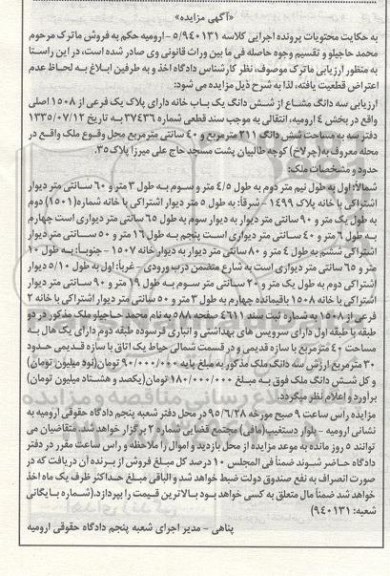 «آگهی مزایده»
به حکایت محتویات پرونده اجرایی کلاسه ۵/۹۴۰۱۳۱ -ارومیه حکم به فروش ماترک مرحوم
محمد حاجیلو و تقسیم وجوه حاصله فی ما بین وراث قانونی وی صادر شده است، در این راستا
به منظور ارزیابی ماترک موصوف، نظر کارشناس دادگاه اخذ و به طرفین ابلاغ به لحاظ عدم
اعتراض قطعیت یافته، لذا به شرح ذیل مزایده می شود:
ارزیابی سه دانگ مشاع از شش دانگ یک باب خانه دارای پلاک یک فرعی از ۱۵۰۸ اصلی
واقع در بخش ۴ ارومیه، انتقالی به موجب سند قطعی شماره ۳۷۴۳۶ به تاریخ ۱۳۳۵/۰۷/۱۲
دفتر سه به مساحت شش دانگ ۲۱۱ مترمربع و ۴۰ سانتی مترمربع محل وقوع ملک واقع در
محله معروف به(چرلاخ) کوچه طالبیان پشت مسجد حاج علی میرزا پلاک ۳۵.
حدود و مشخصات ملک:
شمالاً: اول به طول نیم متر دوم به طول ۴/۵ متر و سوم به طول ۳ متر و ۶۰ سانتی متر دیوار
اشتراکی با خانه پلاک ۱۴۹۹ - شرقاً: به طول ۵ متر دیوار اشتراکی با خانه شماره(۱۵۰۱) دوم
به طول یک متر و ۹۰ سانتی متر دیوار به دیوار سوم به طول ۶۵ سانتی متر دیواری است چهارم
به طول ۶ متر و ۴۰ سانتی متر دیواری است پنجم به طول ۱۶ متر و ۵۰ سانتی متر دیوار
اشتراکی ششم به طول ۴ متر و ۸۰ سانتی متر دیوار به دیوار خانه ۱۵۰۷ - جنوباً: به طول ۱۰
متر و ۶۵ سانتی متر دیواری است به شارع متضمن درب ورودی - غرباً: اول به طول ۵/۱۰ دیوار
اشتراکی دوم به طول یک متر و ۲۰ سانتی متر سوم به طول ۱۹ متر و ۹۰ سانتی متر دیوار
اشتراکی با خانه ۱۵۰۸ باقیمانده چهارم به طول ۳ متر و ۵۰ سانتی متر دیوار اشتراکی با خانه ۲
فرعی از ۱۵۰۸ به شماره ثبت سند ۴۶۱۱ صفحه ۵۸۸ به نام محمد حاجیلو ملک مذکور در دو
طبقه با طبقه اول دارای سرویس های بهداشتی و انباری فرسوده طبقه دوم دارای یک هال به
مساحت ۴۰ مترمربع با سازه قدیمی و در قسمت شمالی حیاط یک اتاق با سازه قدیمی حدود
۳۰ مترمربع ارزش سه دانگ ملک مذکور به مبلغ پایه ۹۰/۰۰۰/۰۰۰ تومان(نود میلیون تومان)
و کل شش دانگ ملک فوق به مبلغ ۱۸۰/۰۰۰/۰۰۰ تومان(یکصد و هشتاد میلیون تومان)
برآورد و اعلام نظر میگردد.
مزایده راس ساعت ۹ صبح مورخه ۹۵/۶/۲۸ در محل دفتر شعبه پنجم دادگاه حقوقی ارومیه به
نشانی ارومیه - بلوار دستغیب(مافی) مجتمع قضایی شماره ۲ برگزار خواهد شد، متقاضیان می
توانند ۵ روز مانده به موعد مزایده از محل بازدید و اموال را ملاحظه و راس ساعت مقرر در دفتر
دادگاه حاضر شوند ضمناً فی المجلس ۱۰ درصد کل مبلغ فروش از برنده آن دریافت که در
صورت انصراف به نفع صندوق دولت ضبط خواهد شد و الباقی مبلغ حداکثر ظرف یک ماه اخذ
خواهد شد ضمناً مال متعلق به کسی خواهد بود بالاترین قیمت را بپردازد.(شماره بایگانی
شعبه: ۹۴۰۱۳۱)
پناهی - مدیر اجرای شعبه پنجم دادگاه حقوقی ارومیه